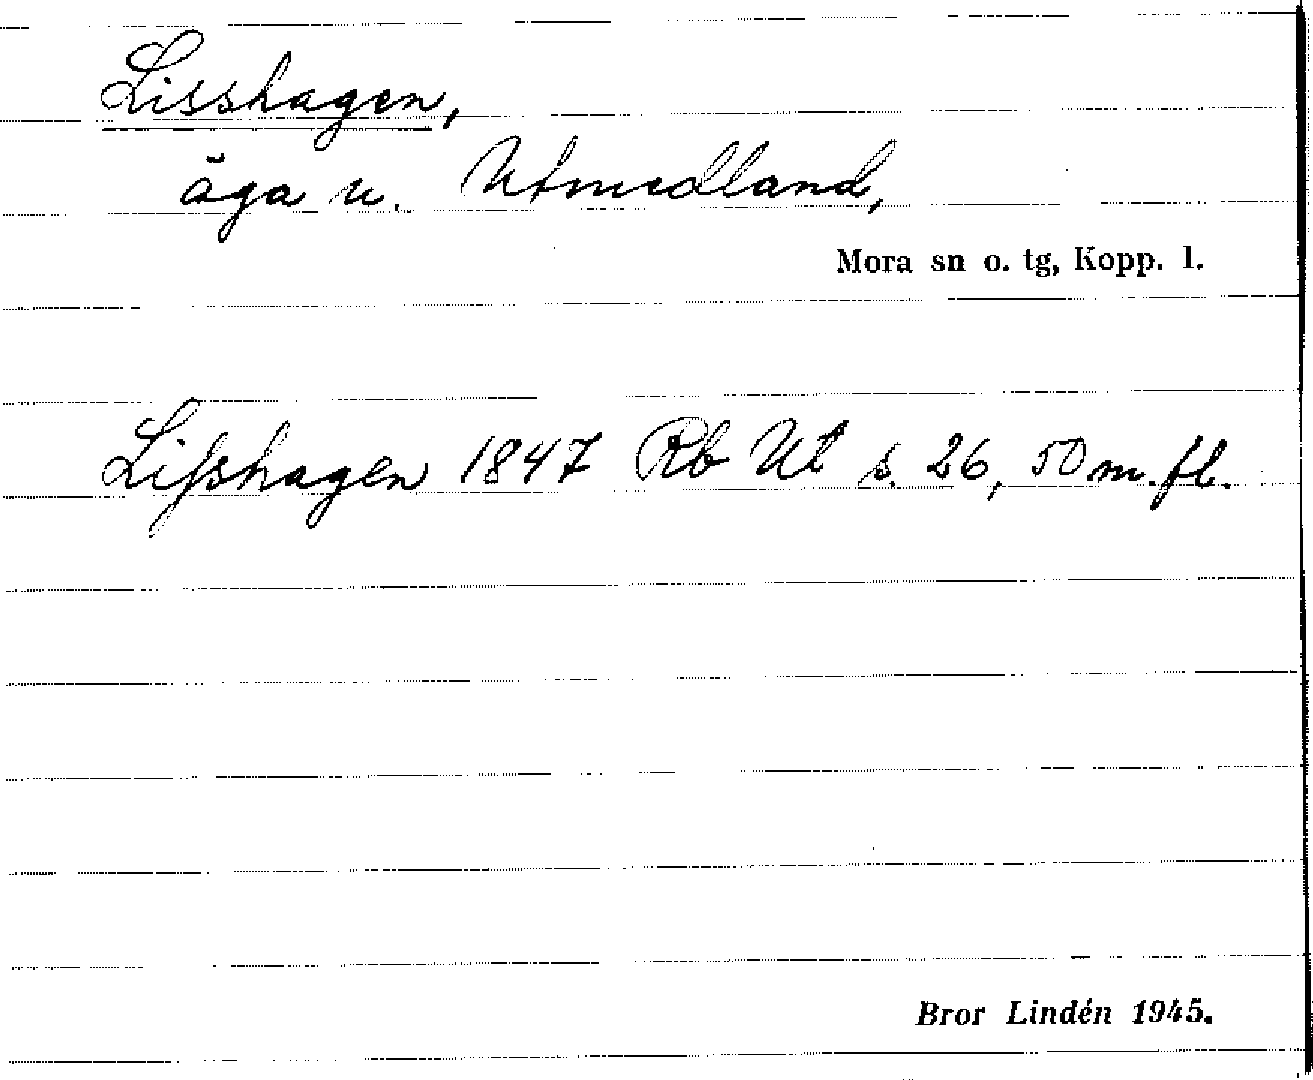 Lisshagen,
äga u. Utmedland,
Mora sn o. tg, Kopp. l.
Lisshagen 1847 Rb Ut s. 26, 50 m. fl.
Bror Lindén 1945.